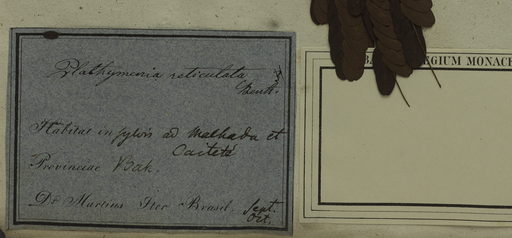 Plathymenia reticulata
Benth.
Habitat in sylvis ad Malhada et
Caiteté
Provinciae Bah.
Dr Martius Iter Brasil. Sept.
Oct.
EGIUM MONAC